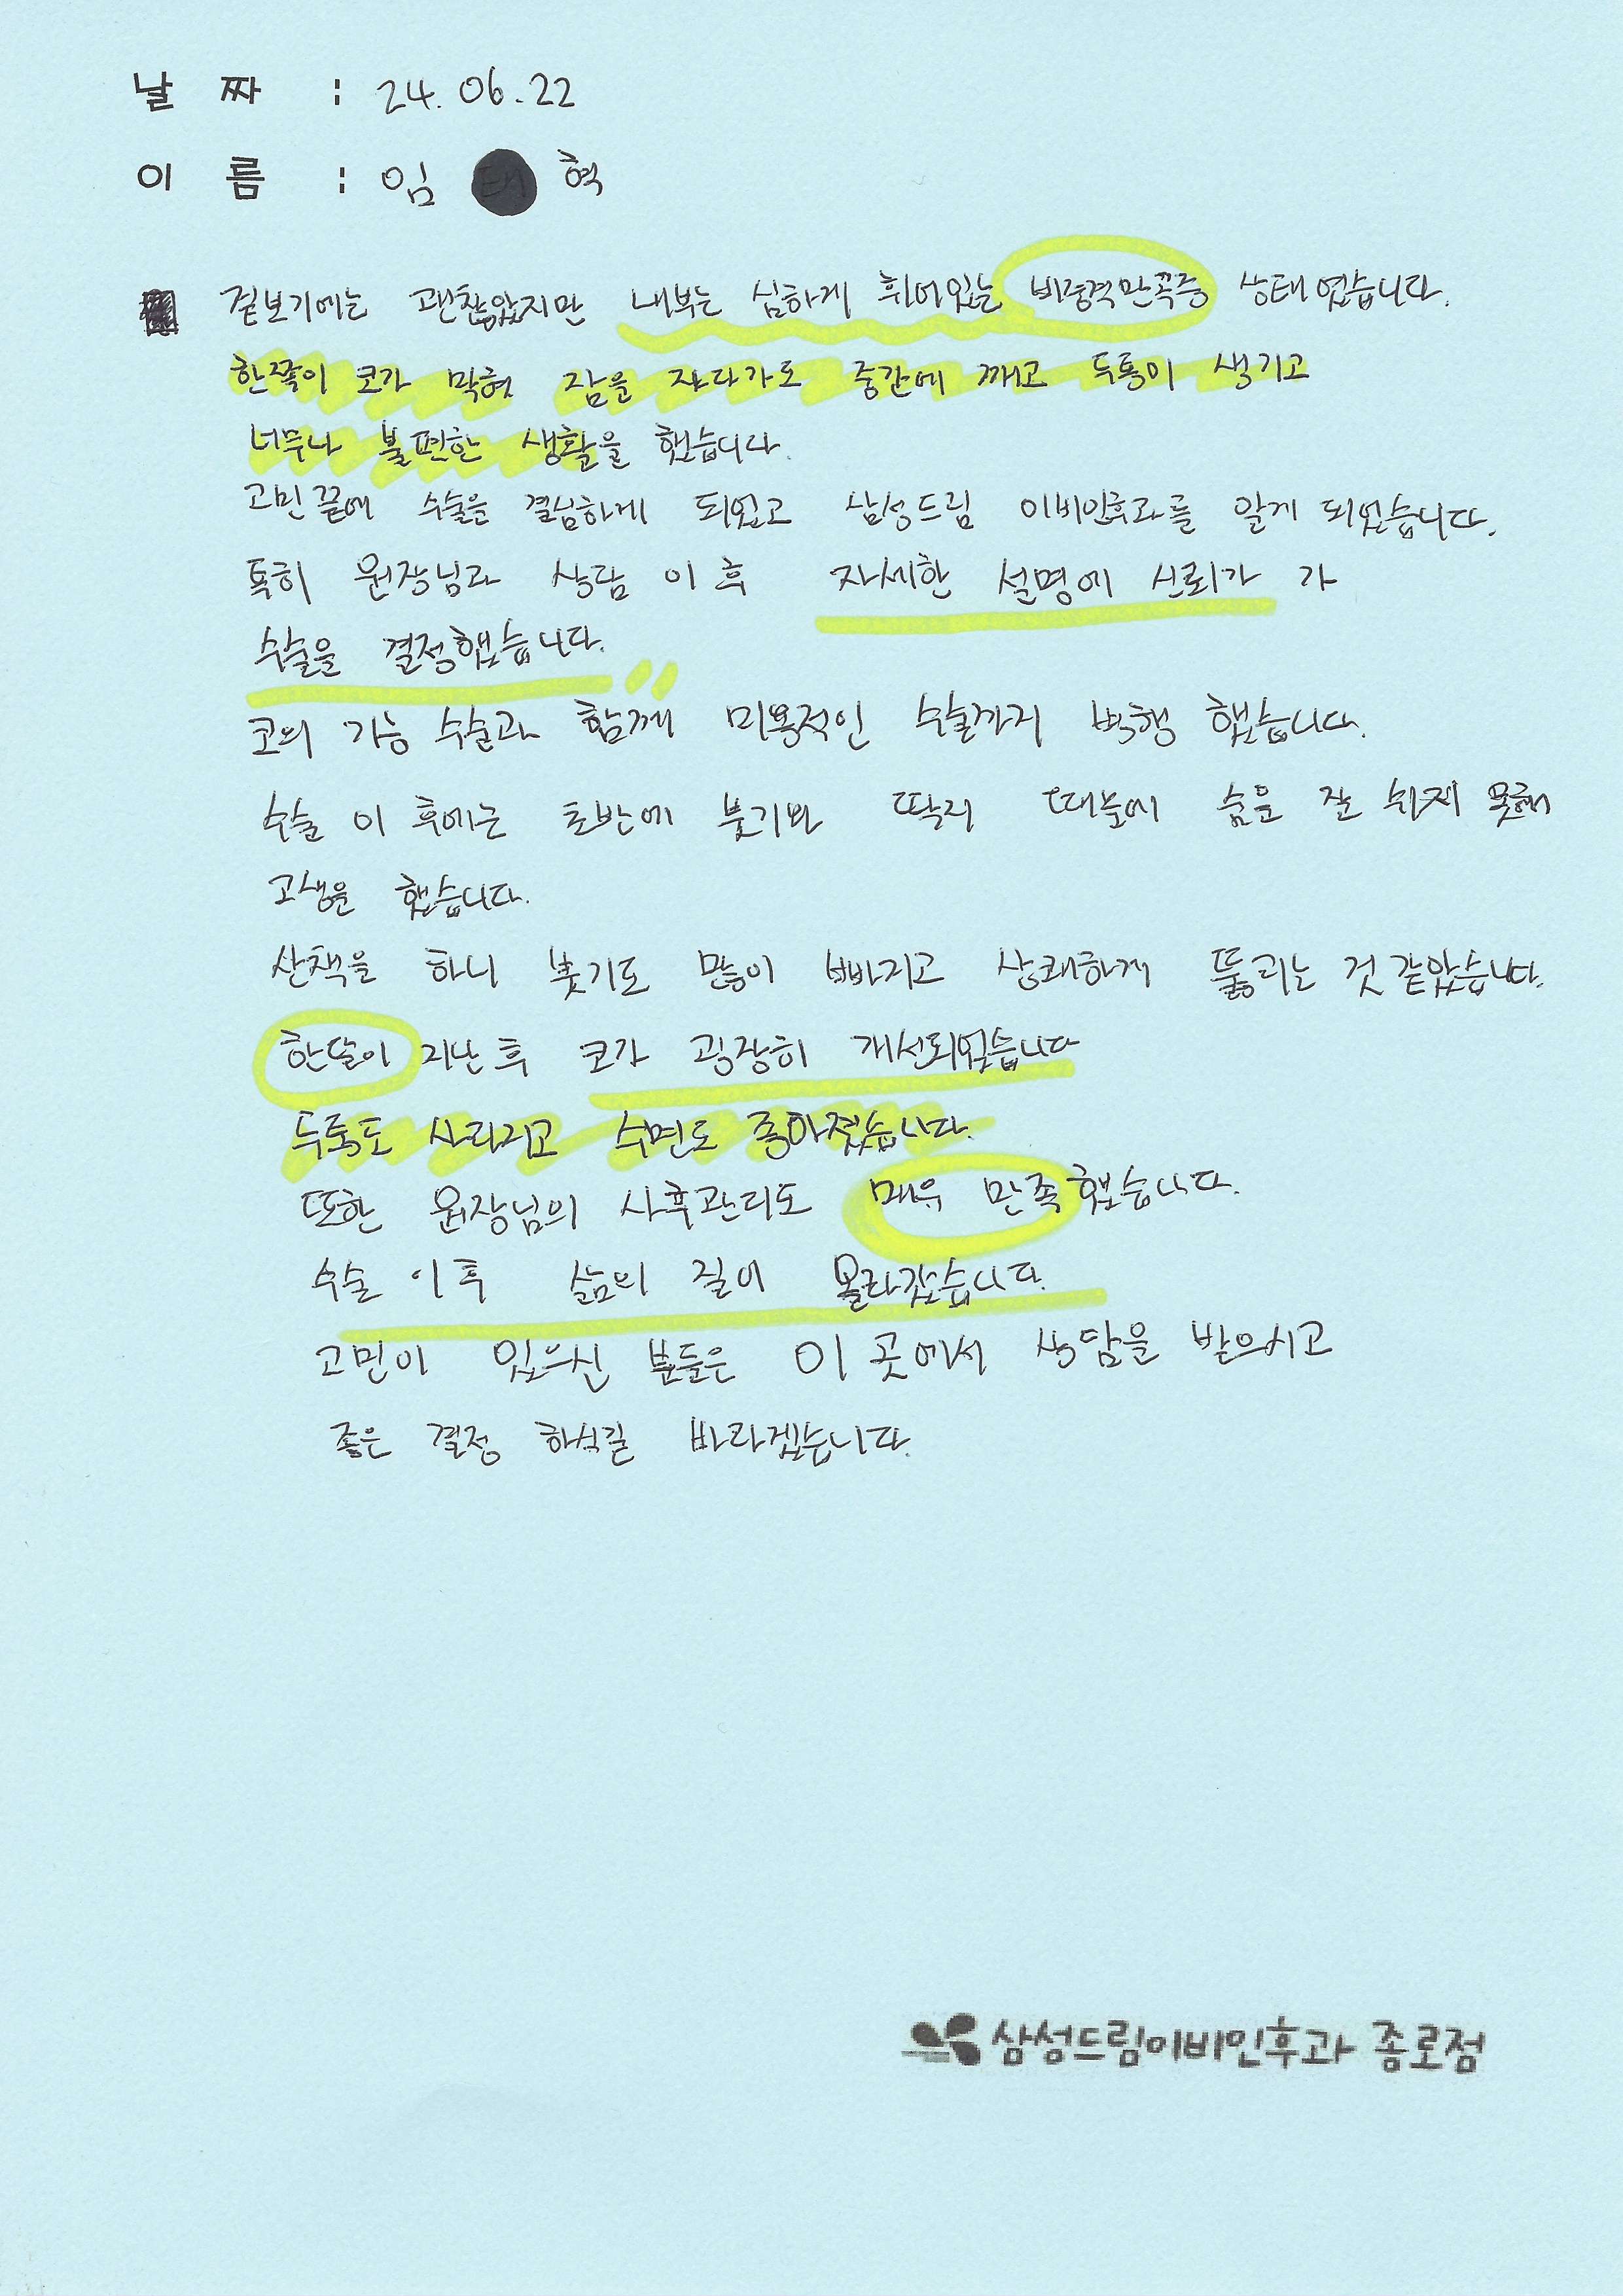 날 짜 : 24. 06. 22
이 름 : 임 혁
겉보기에는 괜찮았지만 내부는 심하게 휘어있는 비중격만곡증 상태였습니다.
한쪽이 코가 막혀 잠을 자다가도 중간에 깨고 두통이 생기고
너무나 불편한 생활을 했습니다.
고민 끝에 수술을 결심하게 되었고 삼성드림 이비인후과를 알게 되었습니다.
특히 원장님과 상담 이 후 자세한 설명에 신뢰가 가
수술을 결정했습니다.
코의 기능 수술과 함께 미용적인 수술까지 병행 했습니다.
수술 이 후에는 초반에 붓기와 딱지 때문에 숨을 잘 쉬지 못해
고생을 했습니다.
산책을 하니 붓기도 많이 빠지고 상쾌하게 뚫리는 것 같았습니다.
한달이 지난 후 코가 굉장히 개선되었습니다
두통도 사라지고 수면도 좋아졌습니다.
또한 원장님의 사후관리도 매우 만족했습니다.
수술 이 후 삶의 질이 올라갔습니다.
고민이 있으신 분들은 이 곳에서 상담을 받으시고
좋은 결정 하시길 바라겠습니다.
삼성드림이비인후과 종로점